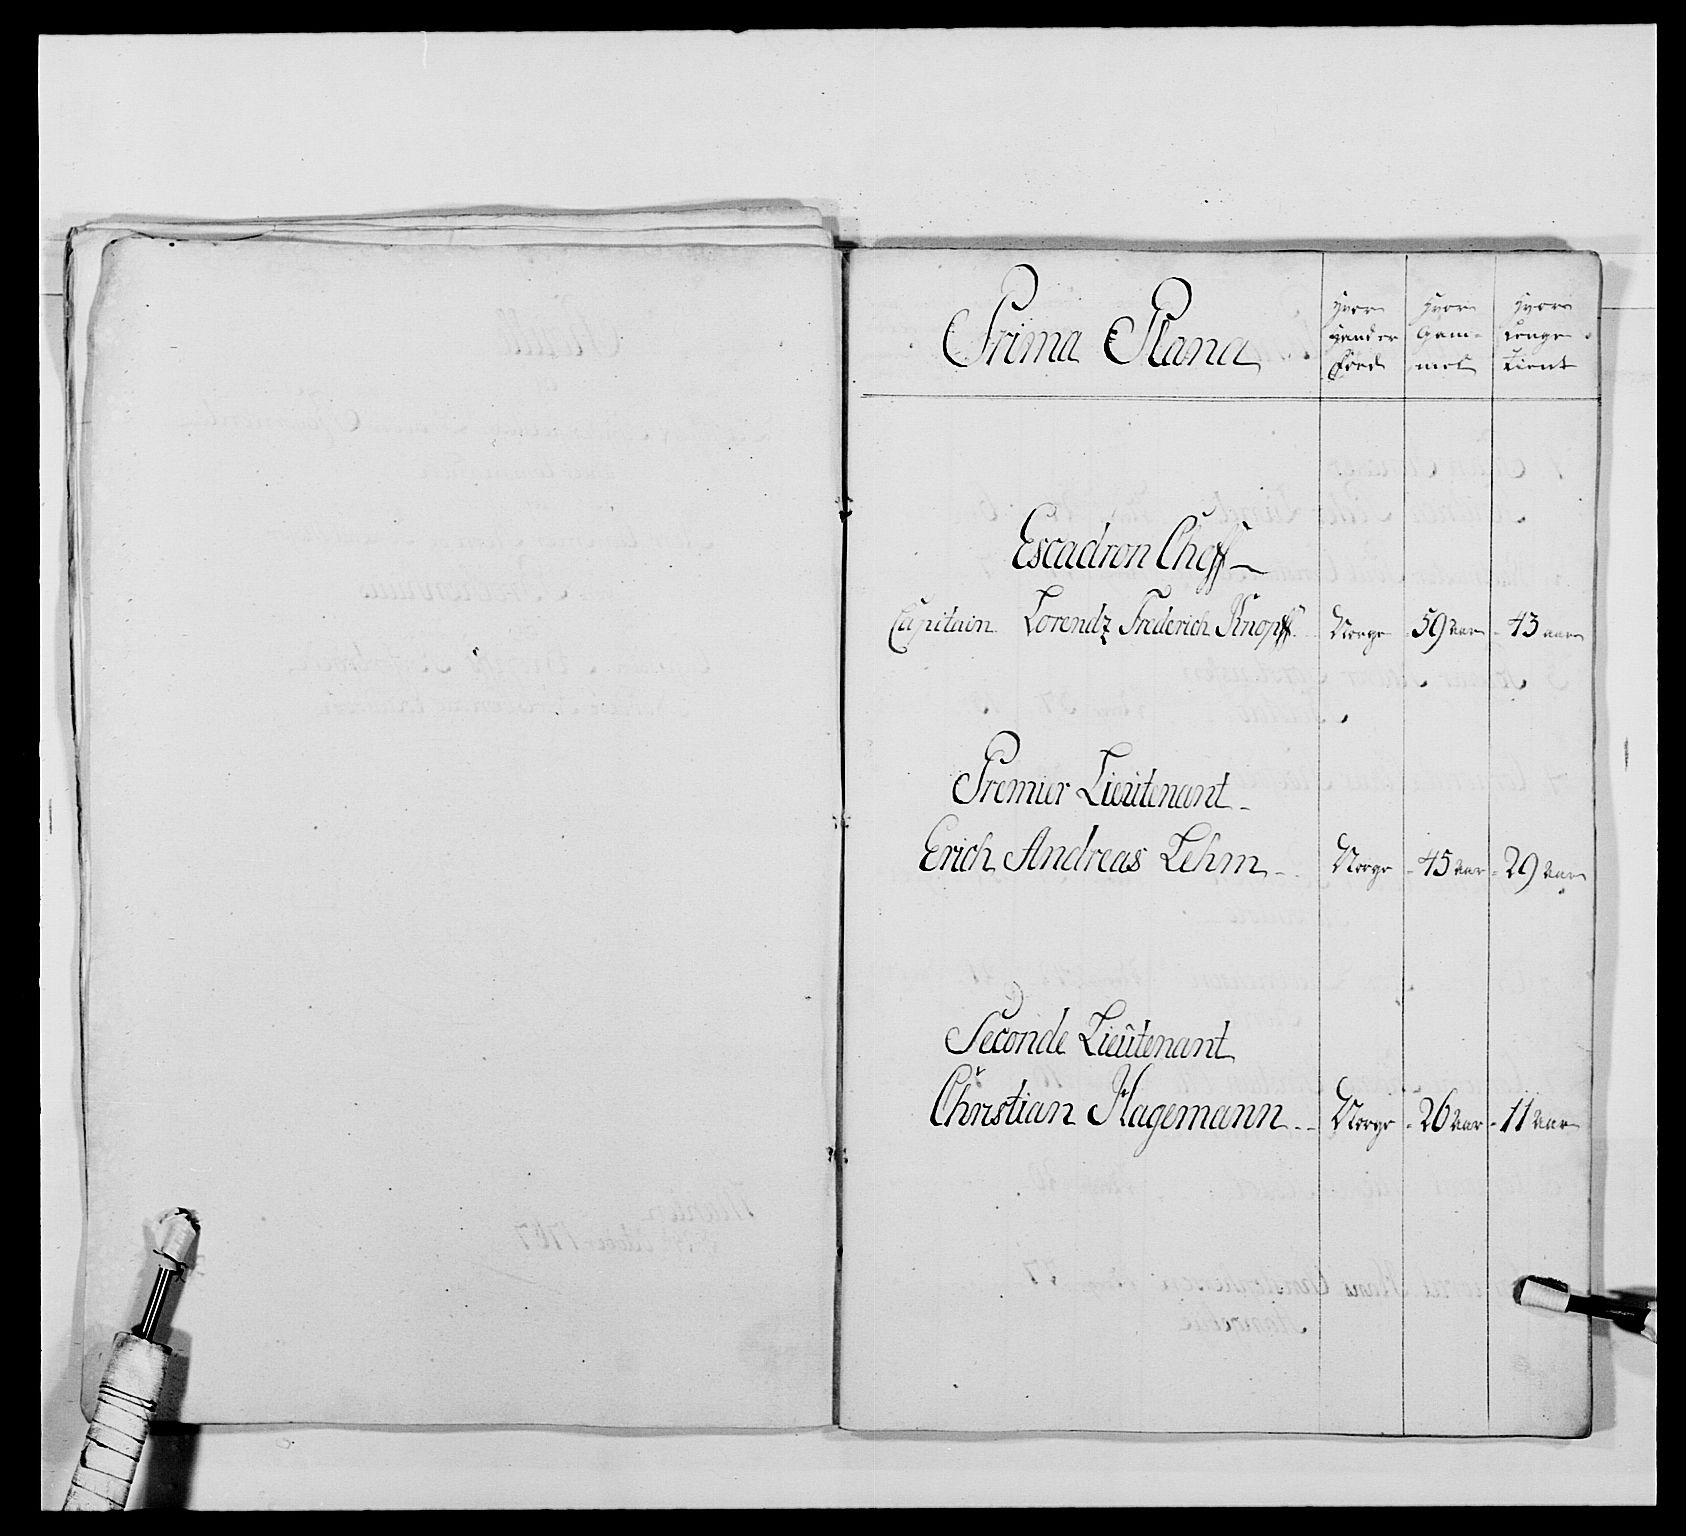 Prima Plana
Hvor hand er Fød
Hvor Gam- mel
Hvor Lenge Tient
Escadron Cheff
Capitain Lorendz Frederich Knopff. Norge 59 aar 43 aar
Premier Lieutenant
Erich Andreas Lehm Norge 45 aar 29 aar
Seconde Lieutenant
Christian Hagemann Norge 26 aar 11 aar